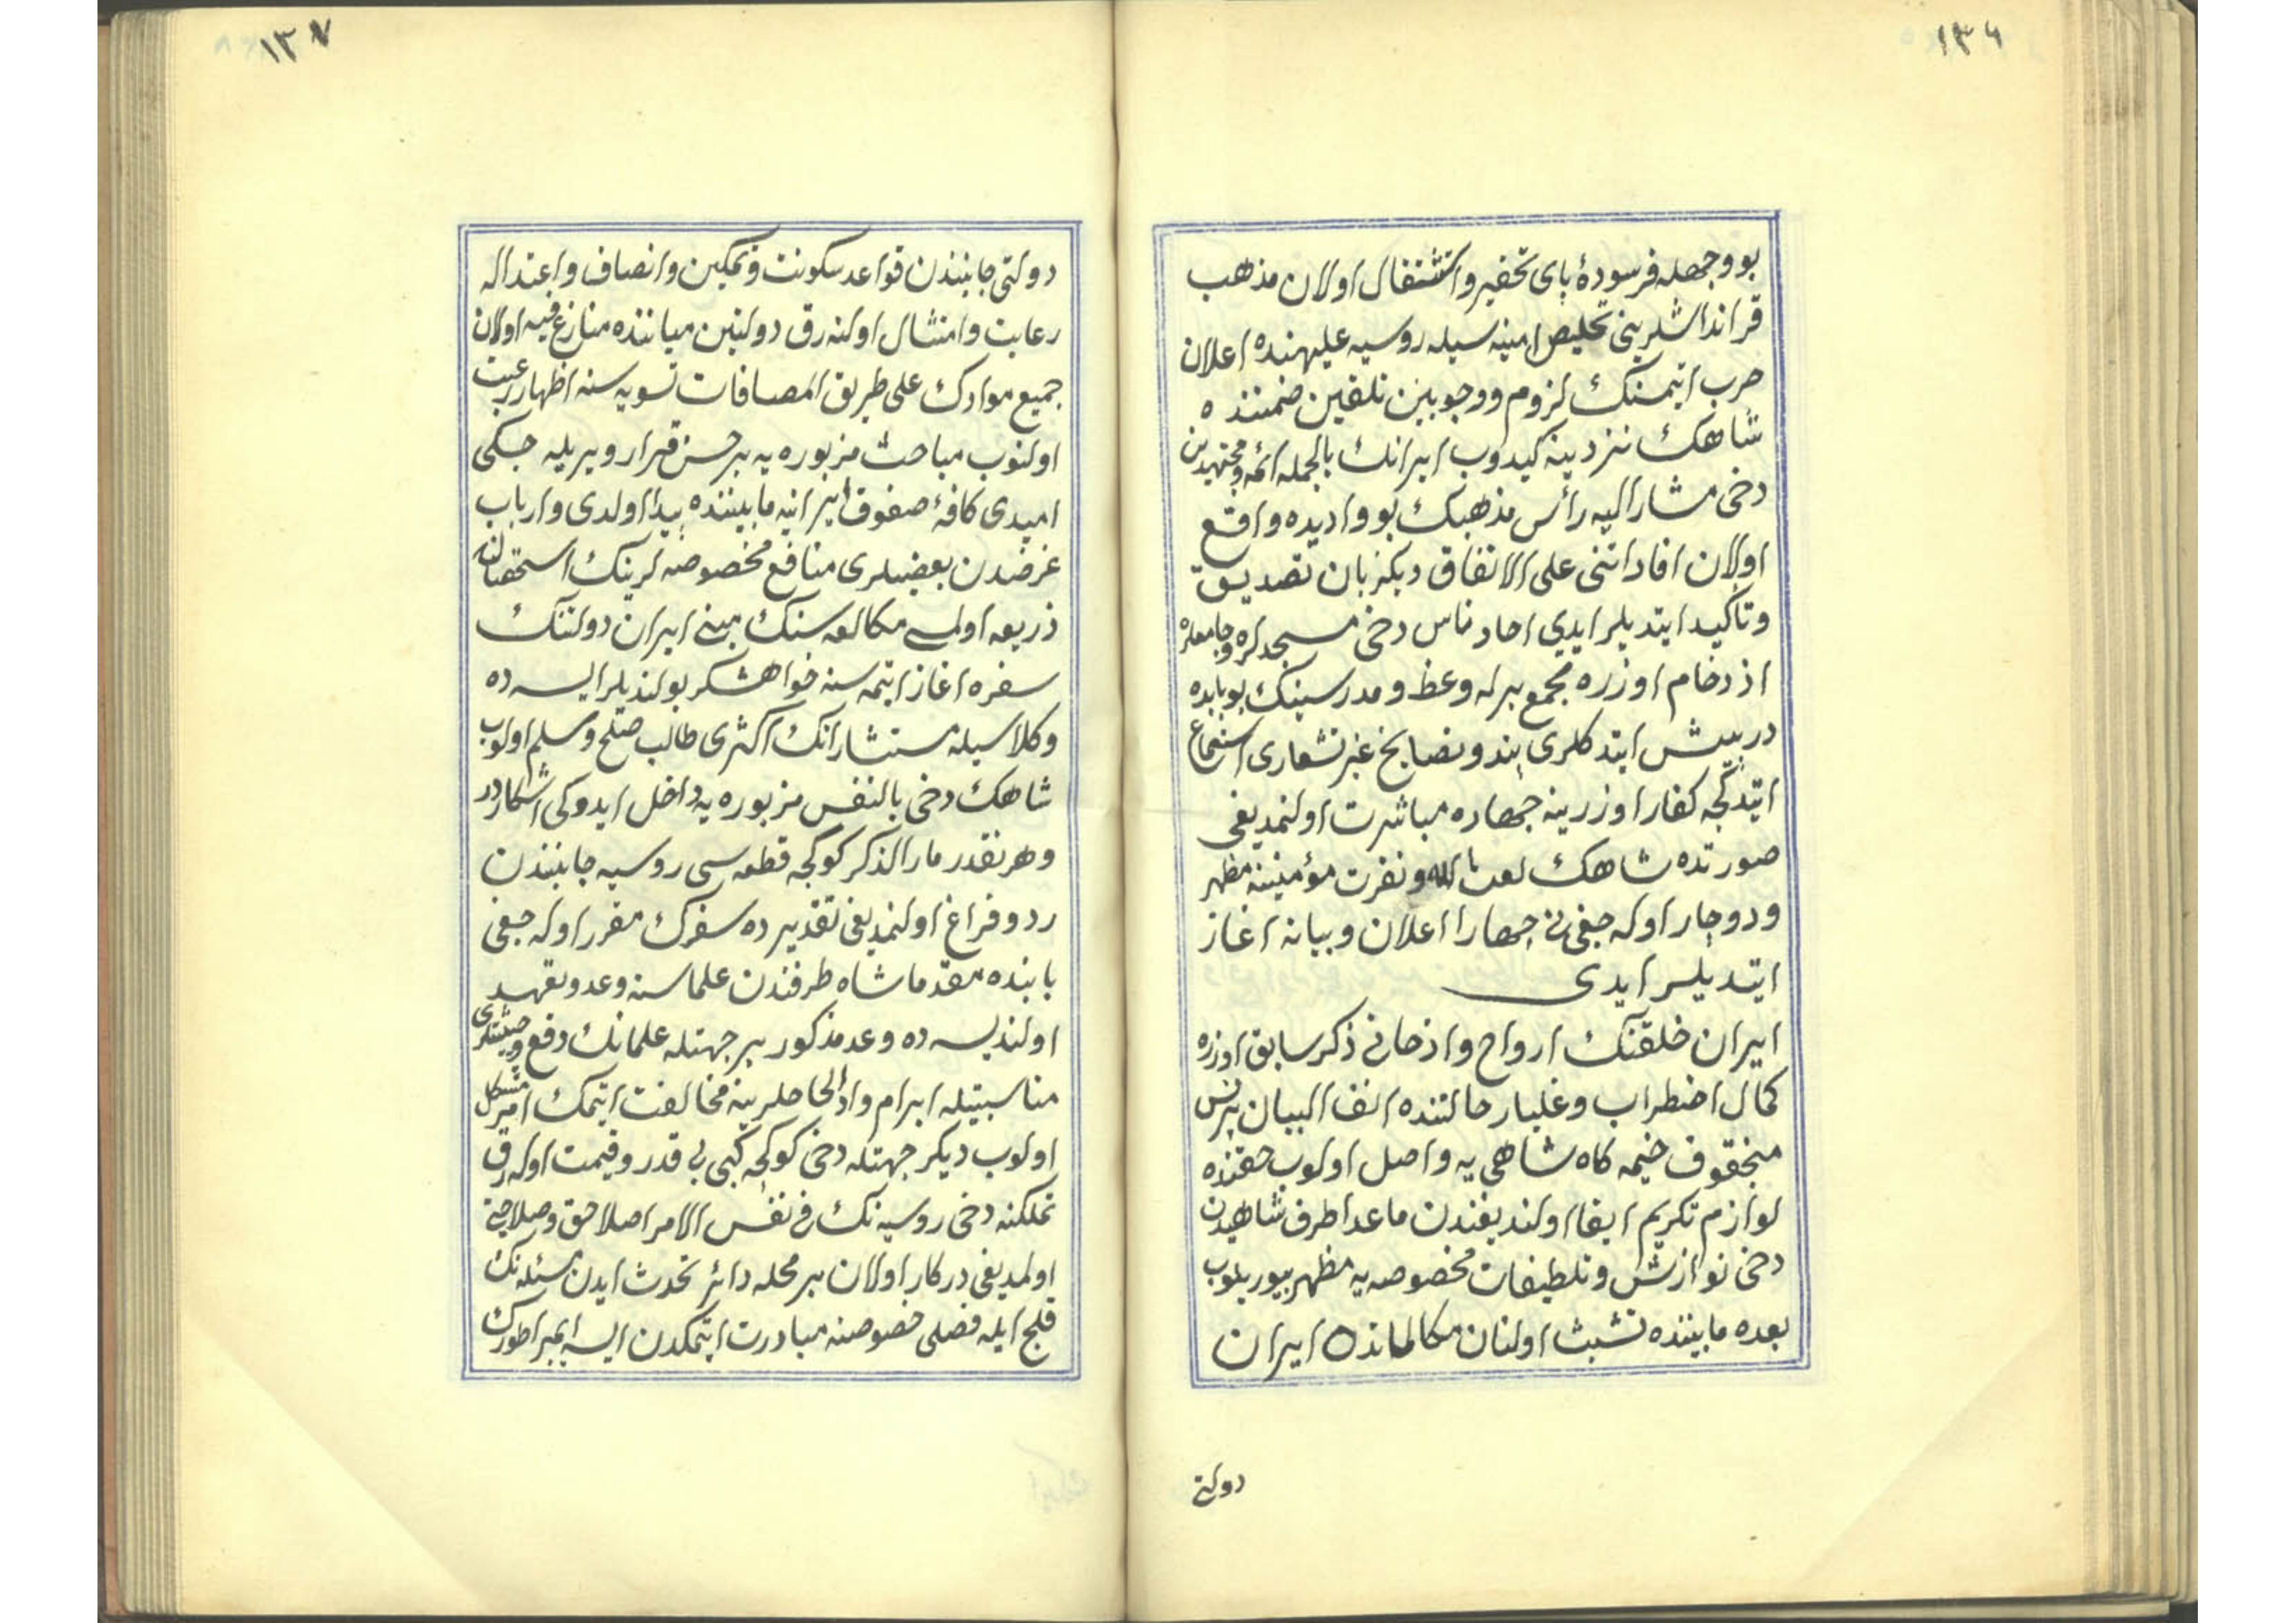 ١٣٦
بو وجهله فرسودهٔ پای تحقیر واستثقال اولان مذهب
قرانداشلرینی تخلیص امینه سیله روسیه علیهنده اعلان
حرب ایتمنك لزوم ووجوبین تلقین ضمننده
شاهك نزدینه كیدوب ایرانك بالجمله ائمه ومجتهدین
دخی مشار الیه رأس مذهبك بو وادیده واقع
اولان افاداتنی علی الاتفاق دیكزبان تصدیق
وتاكید ایتدیلر ایدی احاد ناس دخی مسجدلره وجامعلره
ازدحام اوزره مجمع برله وعظ ومدرسینك بوبابده
درپیش ایتدكلری پند ونصایح غیرتشعاری استماع
ایتدكچه كفار اوزرینه جهاده مباشرت اولنمدیغی
صورتده شاهك لعن بالله ونفرت مؤمنینه مظهر
ودوچار اوله جغی جهارا اعلان وبیانه اغاز
ایتدیلر ایدی
ایران خلقنك ارواح واذهانی ذكر سابق اوزره
كمال اضطراب وغلیان حالتنده انف البیان پرنس
منجقوف خیمه كاه شاهی یه واصل اولوب حقنده
لوازم تكریم ایفا اولندیغندن ماعدا طرف شاهیدن
دخی نوازش وتلطیفات مخصوصه یه مظهر بیوریلوب
بعده مابیننده تشبث اولنان مكالماتده ایران
دولتی
١٣٧
دولتی جانبندن قواعد سكونت وتمكین وانصاف واعتداله
رعایت وامتثال اولنه رق دولتین میاننده منازع فیه اولان
جمیع موادك علی طریق المصافات تسویه سنه اظهار رغبت
اولنوب مباحث مزبوره یه بر حسن قرار ویریله جكی
امیدی كافهٔ صفوف ایرانیه مابیننده پیدا اولدی وارباب
غرضدن بعضیلری منافع مخصوصه لرینك استحصالنه
ذریعه اولسی مطالعه سنك مبنی ایران دولتنك
سفره اغاز ایتمه سنه خواهشكر بولندیلر ایسه ده
وكلا سیله مستشارانك اكثری طالب صلح وسلم اولوب
شاهك دخی بالنفس مزبوره یه داخل ایدوكی اشكاردر
وهر نقدر مار الذكر كوكچه قطعه سی روسیه جانبندن
رد وفراغ اولنمدیغی تقدیرده سفرك مقرر اوله جغی
بابنده مقدما شاه طرفندن علماسنه وعد وتعهد
اولندیسه ده وعد مذكور بر جهتله علمانك دفع وحیثیتلری
مناسبتیله ابرام والحاحلرینه مخالفت ایتمك امر مشكل
اولوب دیكر جهتله دخی كوكچه كبی بی قدر وقیمت اوله رق
تملكنه دخی روسیه نك فی نفس الامر اصلا حق وصلاحیتی
اولمدیغی دركار اولان بر محله دائر تحدث ایدن مسئله نك
قلج ایله فصلی خصوصنه مبادرت ایتمكدن ایسه ایمپراطورك